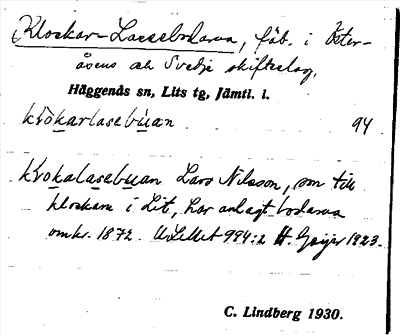 Klockar-Lassebodarna, fäb. i Öster-
åsens och Svedje skifteslag,
Häggenås sn, Lits tg, Jämtl. l.
krokarlasebuan 94
krokalasebuan Lars Nilsson, son till
klockare i Lit, har anlagt bodarna
omkr. 1872. ULMA 994:2 H. Geijer 1923.
C. Lindberg 1930.